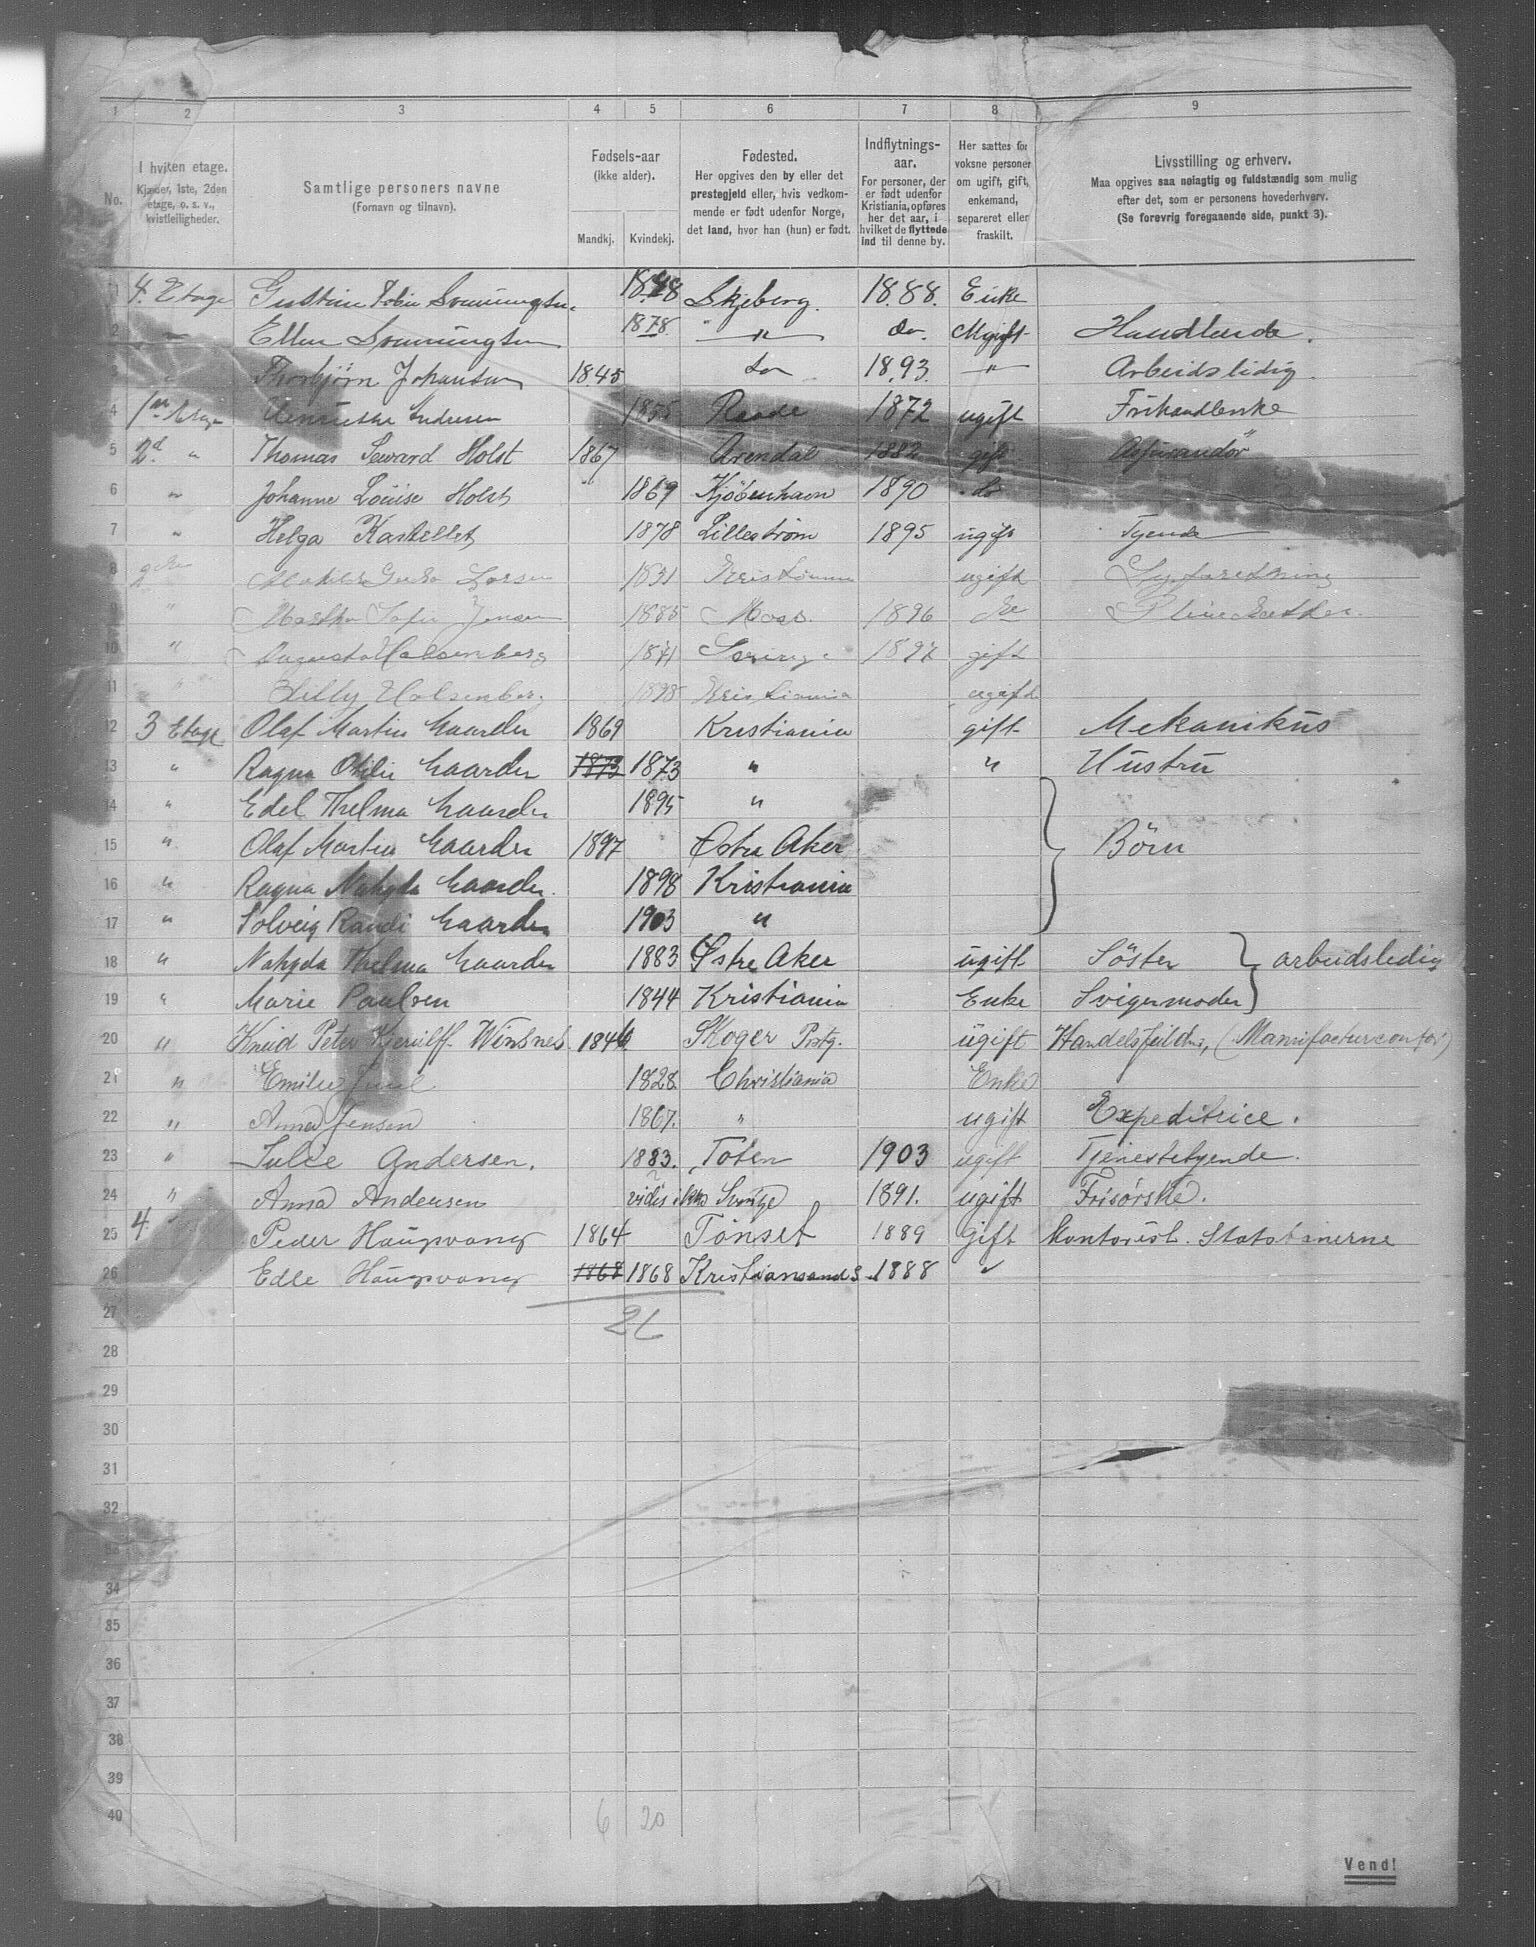 1 2 3 4 5 6 7 8 9
No.
I hvilken etage.
Kjælder, 1ste, 2den
etage, o. s. v.,
kvistleiligheder.
Samtlige personers navne
(Fornavn og tilnavn).
Fødsels-aar
(ikke alder).
Mandkj. Kvindekj.
Fødested.
Her opgives den by eller det
prestegjeld eller, hvis vedkom-
mende er født udenfor Norge,
det land, hvor han (hun) er født.
Indflytnings-
aar.
For personer, der
er født udenfor
Kristiania, opføres
her det aar, i
hvilket de flyttede
ind til denne by.
Her sættes for
voksne personer
om ugift, gift,
enkemand,
separeret eller
fraskilt.
Livsstilling og erhverv.
Maa opgives saa nøiagtig og fuldstændig som mulig
efter det, som er personens hovederhverv.
(Se forøvrig foregaaende side, punkt 3).
1 4. Etage 1848 Skjeberg. 1888. Enke
2 " Ellen 1878. " do. Ugift Handlende.
3 " Thorbjörn Johansen 1845 do 1893. " Arbeidslidig
4 1ste Etage Andersen 1855 Raade 1872 ugift Frihandlerske
5 2d. " Thomas Seward Holst 1867 Arendal 1882 gift Assurandör
6 " Johanne Louise Holst 1869 Kjöbenhavn 1890 do
7 " Helga Kastellet 1878 Lillestrøm 1895 ugift Tjende
8 Larsen 1831 Kristiania ugift Syforretning
9 " Martha Sofie Jensen 1885 Moss. 1896
10 " Augusta Halsenberg 1871 Sverige 1897 gift
11 " Lilly Halsenberg. 1898 Kristiania ugift
12 3 Etage Olaf Martin Gaarder 1869 Kristiania gift Mekanikus
13 " Ragna Otilie Gaarder 1873 1873 " " Hustru
14 " Edel Thelma Gaarder 1895 "
15 " Olaf Martin Gaarder 1897 Østre Aker Börn
16 " Ragna Nahyda Gaarder. 1898 Kristiania
17 " Solveig Randi Gaarder 1903 "
18 " Nahyda Thelma Gaarder 1883 Østre Aker ugift Söster arbeidsledig
19 " Marie Paulsen 1844 Kristiania Enke Svigermoder
20 " Knud Peter Kjerulff Winsnes. 1846 Skoger Prstg. ugift Handelsfuldm., (Manufacturcontor)
21 " Emilie Juul 1828. Christiania Enke
22 " Anna Jensen 1867. " ugift Expeditrice.
23 " Julie Andersen. 1883. Toten 1903 ugift Tjenestetjende.
24 " Anna Andersen vides ikke Sverige 1891. ugift Frisørske.
25 4. " Peder Haugvang 1864 Tönset 1889 Gift Kontorist. Statsbanerne
26 Edle Haugvang 1868 1868 Kristiansand S. 1888 "
27 26
28
29
30
31
32
33
34
35
36
37
38
39
40 6 20
Vend!